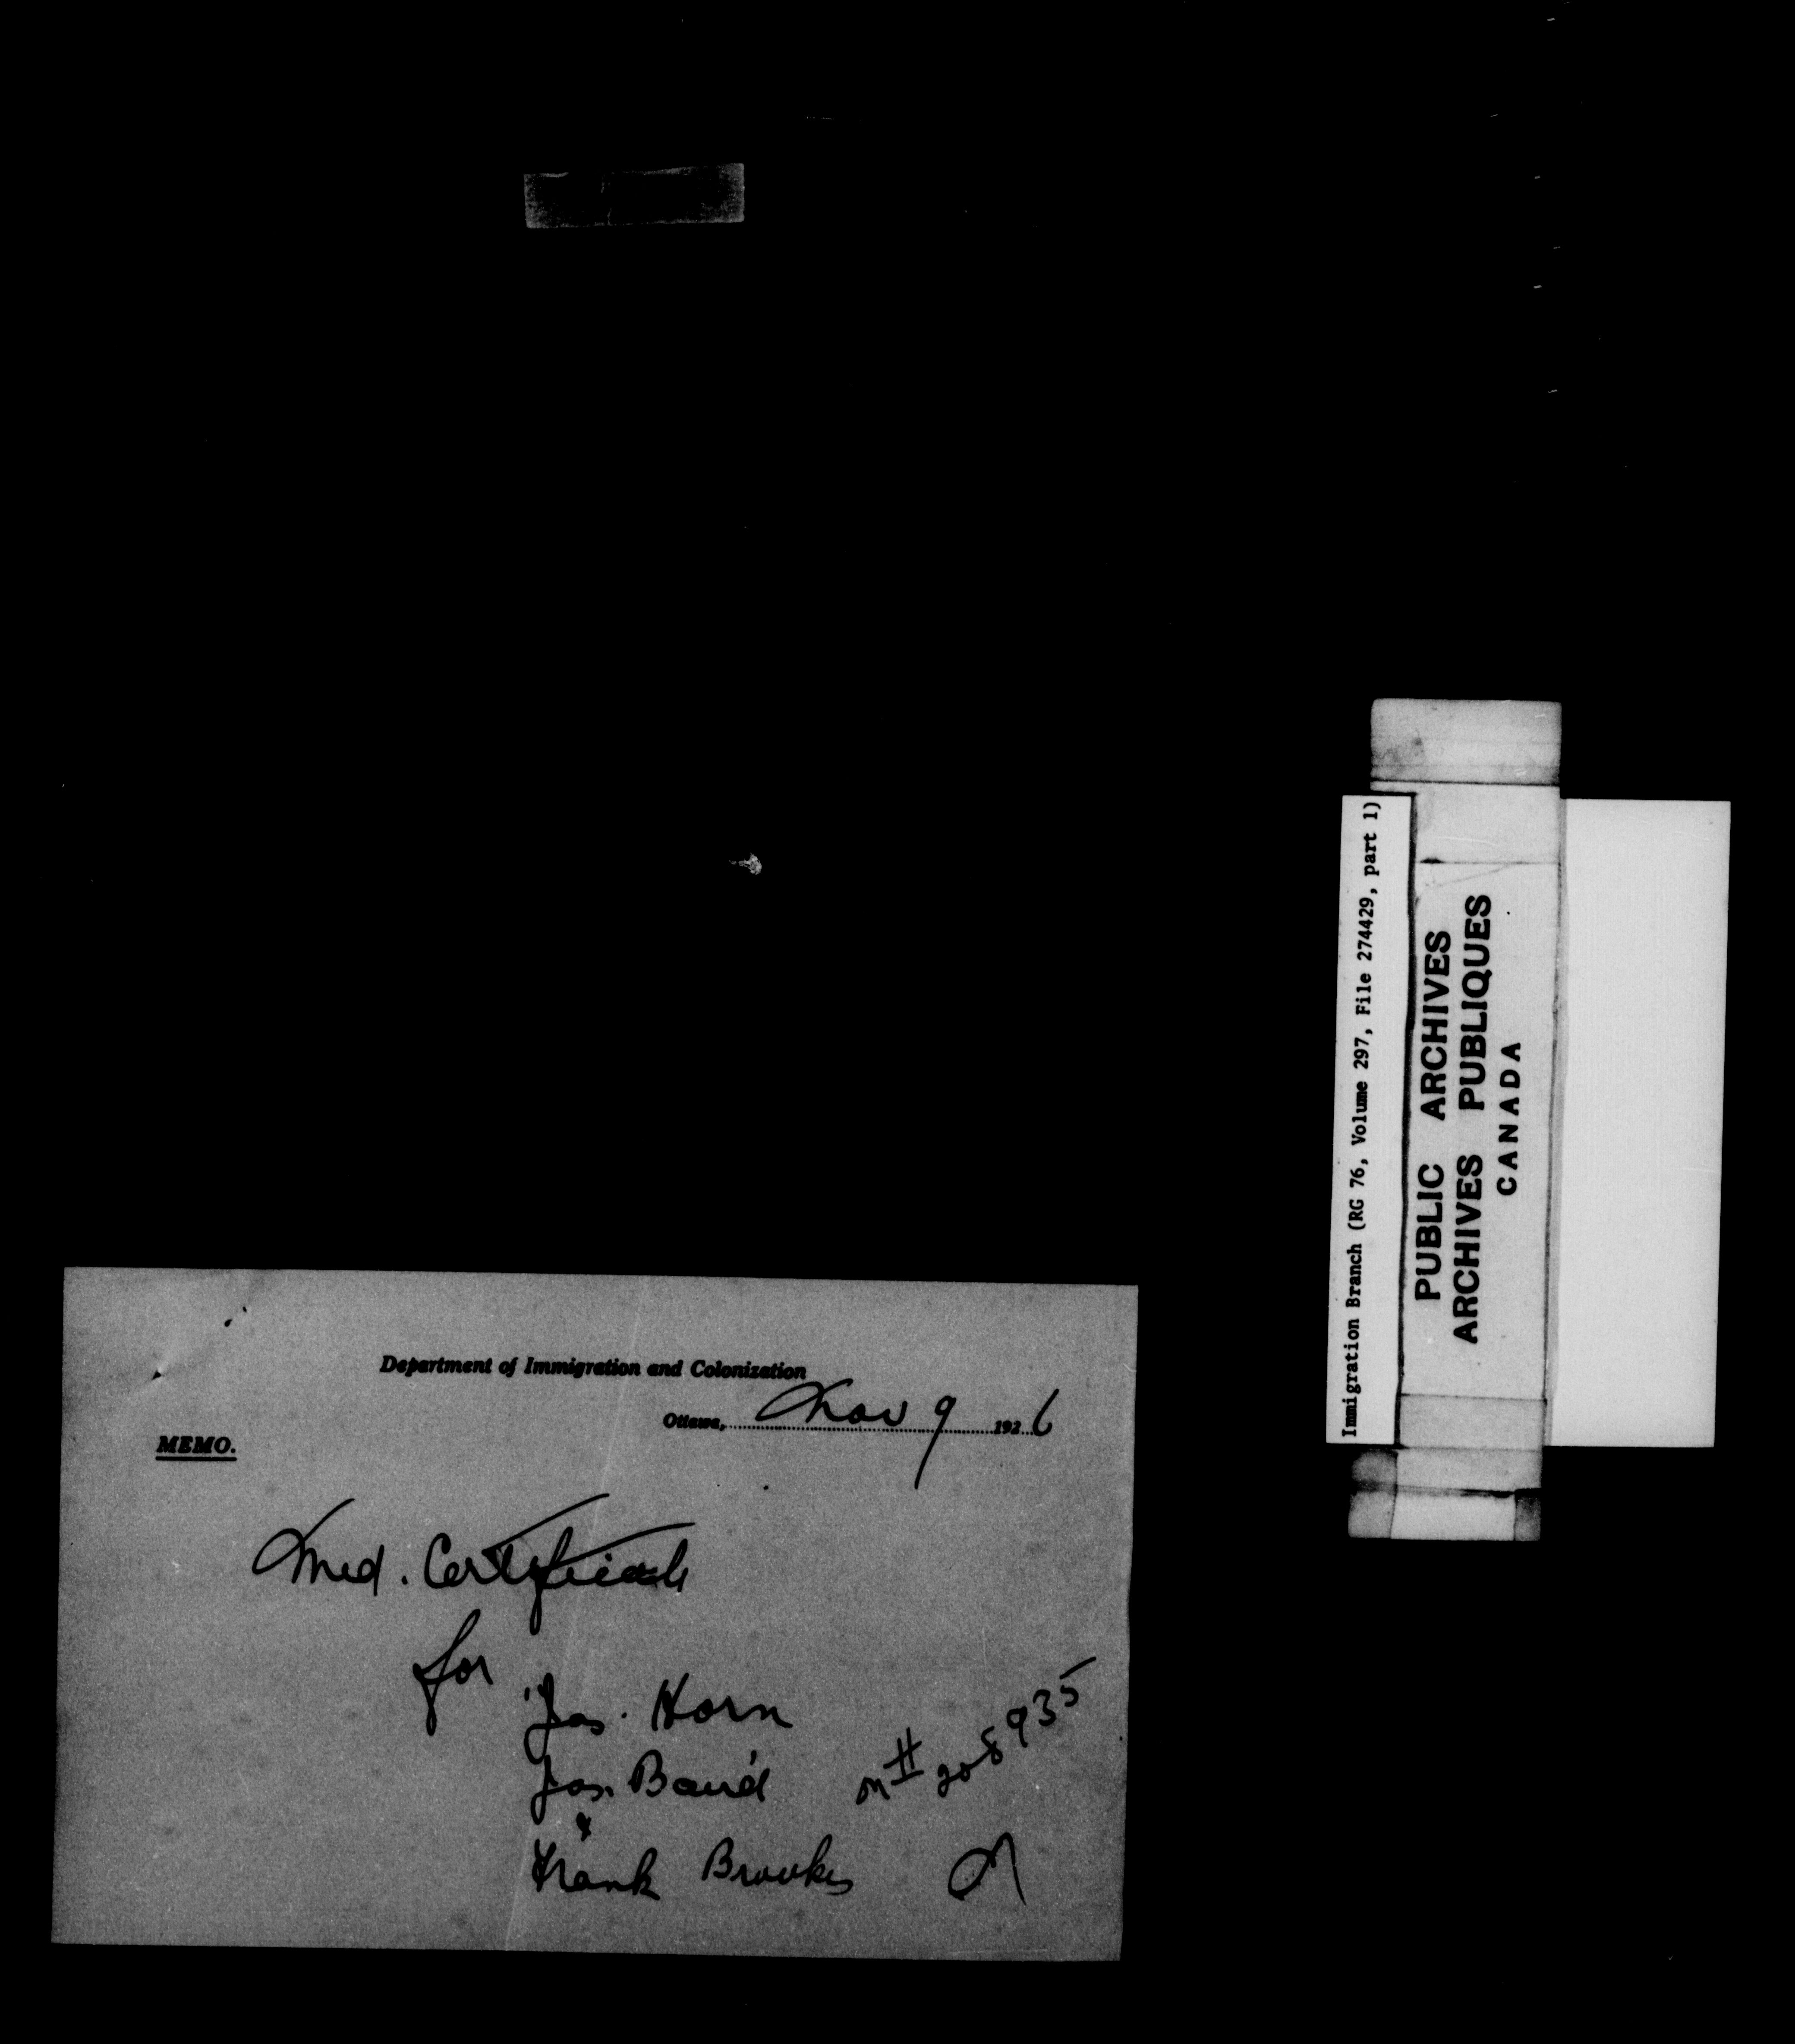 Department of Immigration and Colonization
Ottawa, Nov 9 1926
MEMO.
Med. Certificate
for
Jas. Horn
Jas. Baird
on # 208935
&
Frank Brookes
Immigration Branch (RG 76, Volume 297, File 274429, part 1)
PUBLIC ARCHIVES
ARCHIVES PUBLIQUES
CANADA